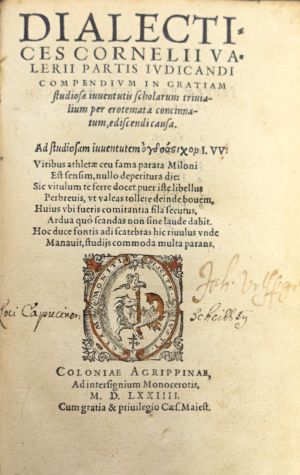 DIALECTI-
CES CORNELII VA-
LERII PARTIS IVDICANDI
COMPENDIVM IN GRATIAM
studiosæ iuuentutis scholarum triuia-
lium per erotemata concinna-
tum, ediscendi causa.
Ad studiosam iuuentutem I. VV.
Viribus athletæ ceu fama parata Miloni
Est sensim, nullo deperitura die:
Sic vitulum te ferre docet puer iste libellus
Perbreuis, vt valeas tollere deinde bouem,
Huius vbi fueris comitantia fila secutus,
Ardua quò scandas non sine laude dabit.
Hoc duce fontis adi scatebras hic riuulus vnde
Manauit, studijs commoda multa parans,
Joh.
Loci Capucinor:
Scheibbsij
COLONIAE AGRIPPINAE,
Ad intersignium Monocerotis,
M. D. LXXIIII.
Cum gratia & priuilegio Cæs. Maiest.